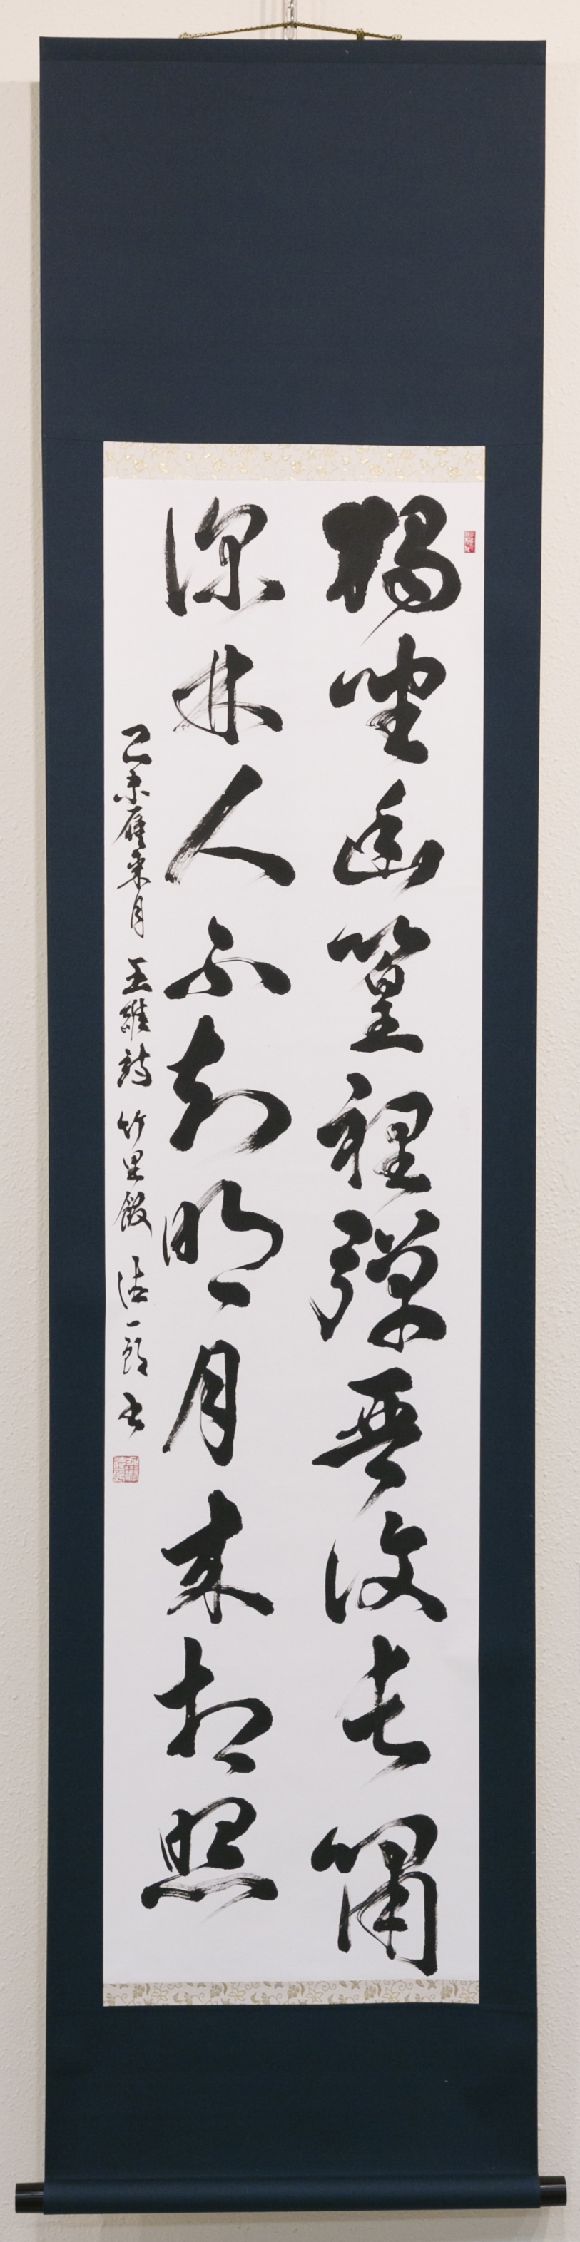 獨坐幽篁裡彈琴復長嘯
深林人不知明月来相照
乙未雁来月 王維詩 竹里館 浩一郎 书